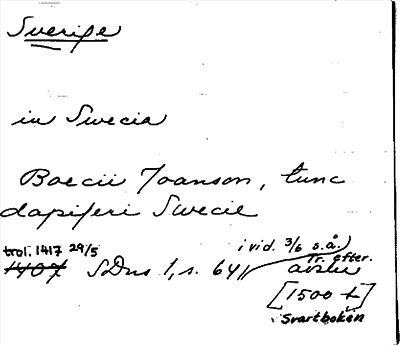 Sverige
in Swecia
Boecii Joanson, tunc
dapiferi Swecie
i vid. 3/6 s.å.)
trol. 1417 29/5 Tr. efter.
1407 SDns 1, s. 641 avskr
[1500 t]
Svartboken